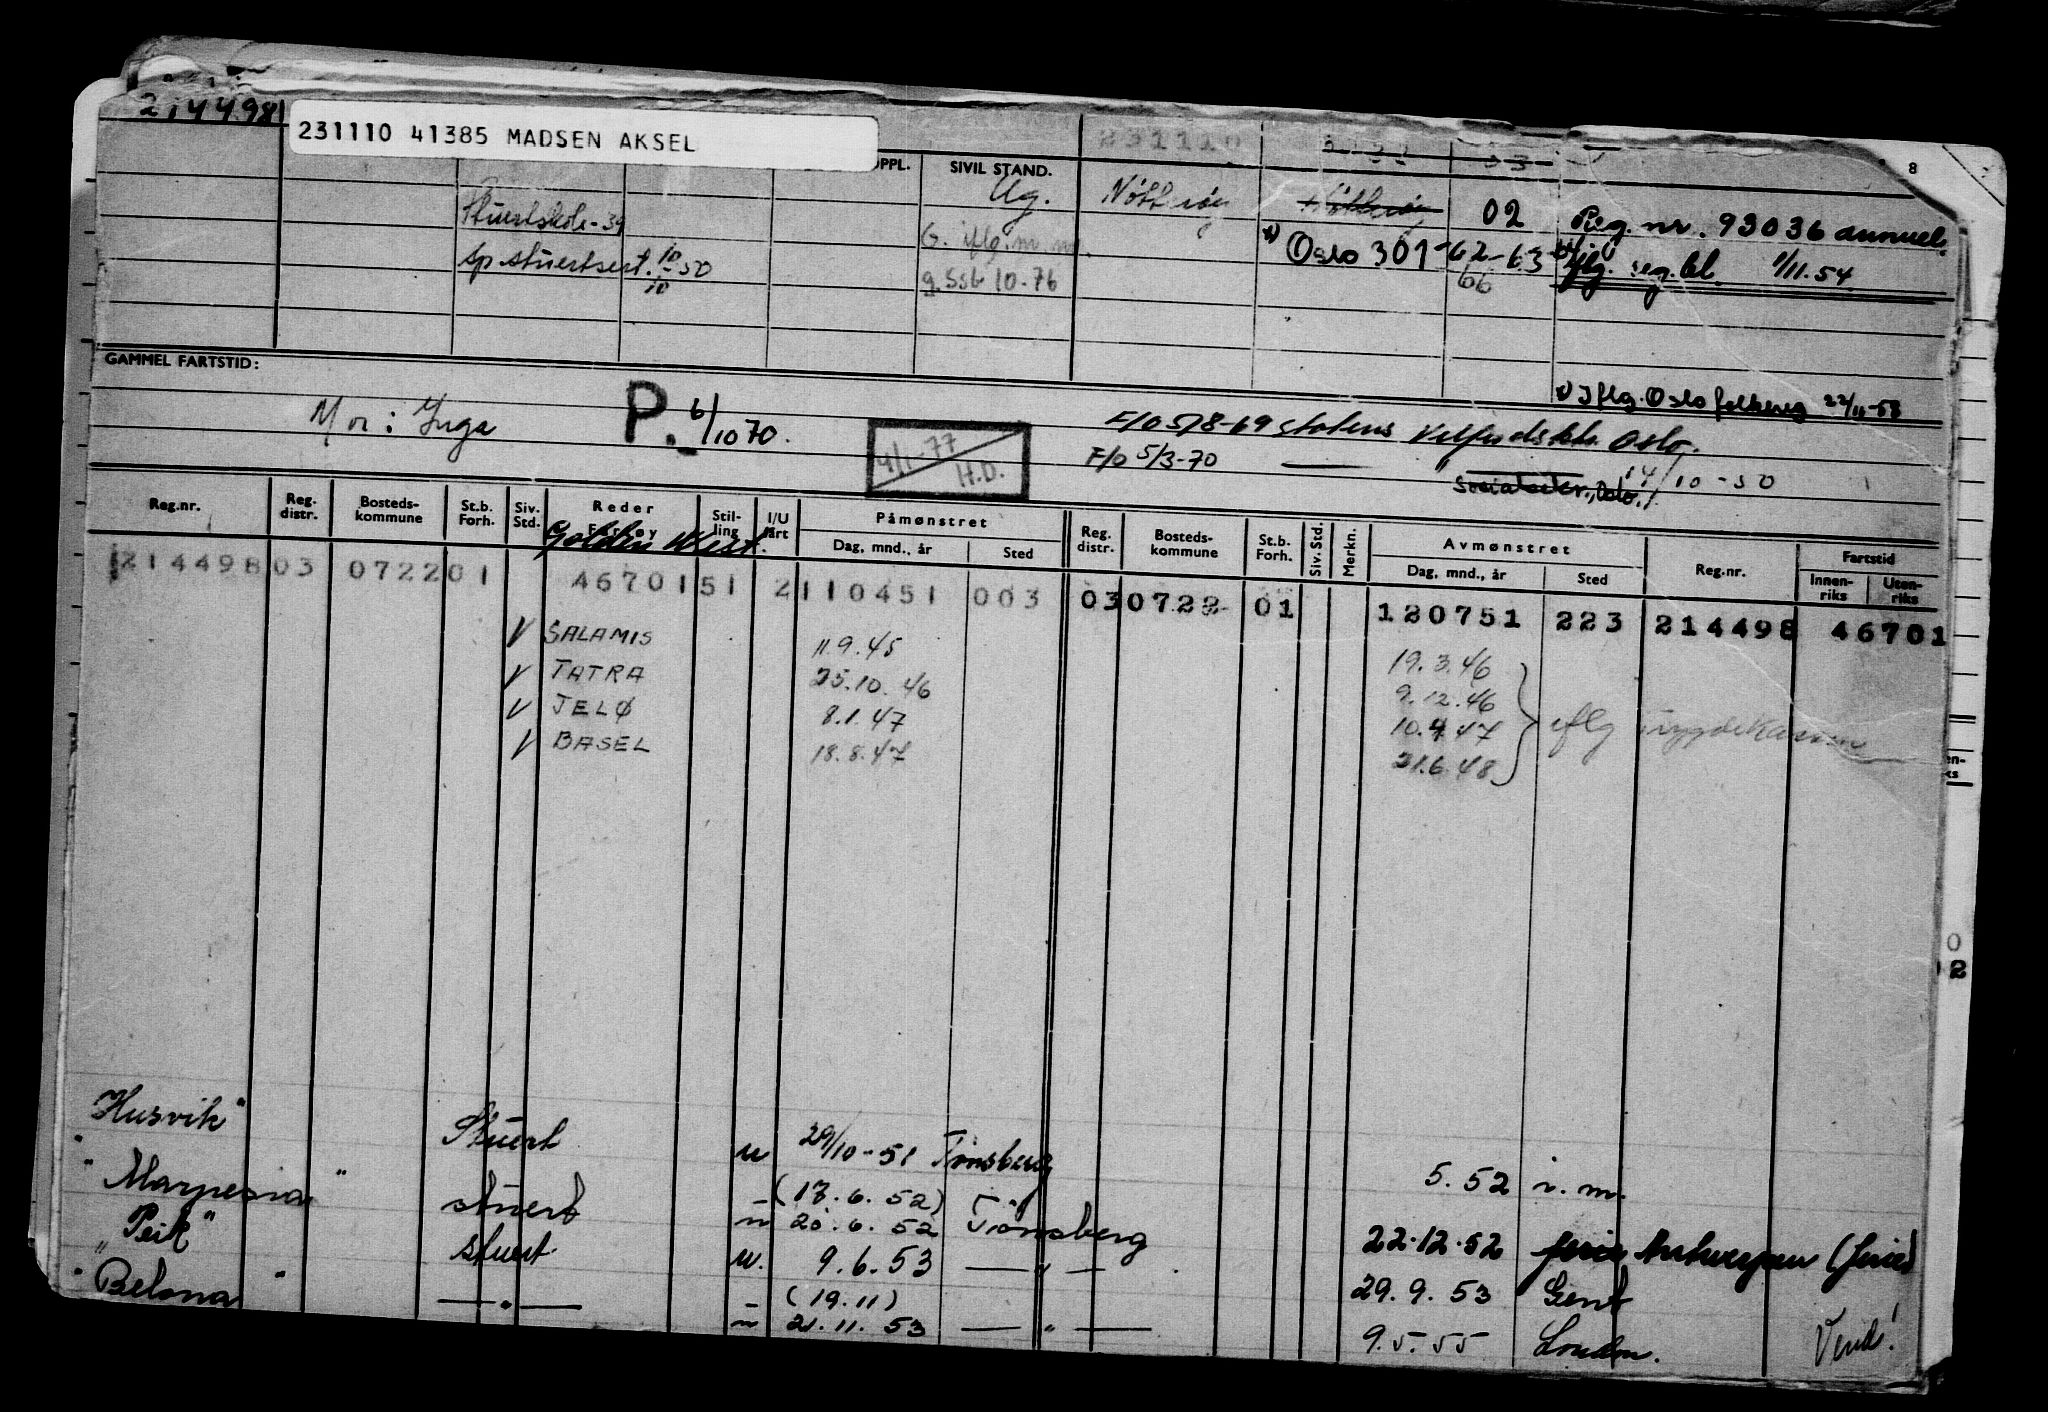 214498
231110 41385 MADSEN AKSEL
231110
8
OPPL. SIVIL STAND.
Ug. Nøtterøy Nøtterøy 02 Reg.nr. 93036 annuel.
Stuertskole-39
G. iflg. m.m. x) Oslo 301-62-63- iflg. reg.bl. 1/11.54
sp.stuertsert. 10/10-50
g. SSB 10-76 66
GAMMEL FARTSTID:
x) Iflg. Oslo folkereg 22/11-58
Mor: Inga P. 6/10 70. F/O 5/8-69 Statens Velferdsktr. Oslo.
4/1-77 H.D.
F/O 5/3-70 — " — 14/10-50
Reg.nr. Reg. distr. Bosteds- kommune St.b. Forh. Siv. Std. Reder Fartøy Stil- ling I/U fart Påmønstret Dag, mnd., år Sted Reg. distr. Bosteds- kommune St.b. Forh. Siv. Std. Merkn. Avmønstret Dag, mnd., år Sted Reg.nr. Fartstid Innen- riks Uten- riks
Golden West.
214498 03 0722 01 46701 51 2 110451 003 03 0722 01 120751 223 214498 46701
V SALAMIS 11.9.45 19.3.46
V TATRA 25.10.46 9.12.46
V JELØ 8.1.47 10.4.47 iflg trygdekassen
V BASEL 18.8.47 21.6.48
02
"Husvik" Stuert u 29/10-51 Tønsberg 5.52 i.m.
"Marpesia" stuert u (17.6.52) 20.6.52 Tønsberg 22.12.52 Antwerpen (ferie)
"Peik" stuert u. 9.6.53 — " — 29.9.53 Gent
"Belona" — " — u (19.11) 21.11.53 — " — 9.5.55 London.
Vend!